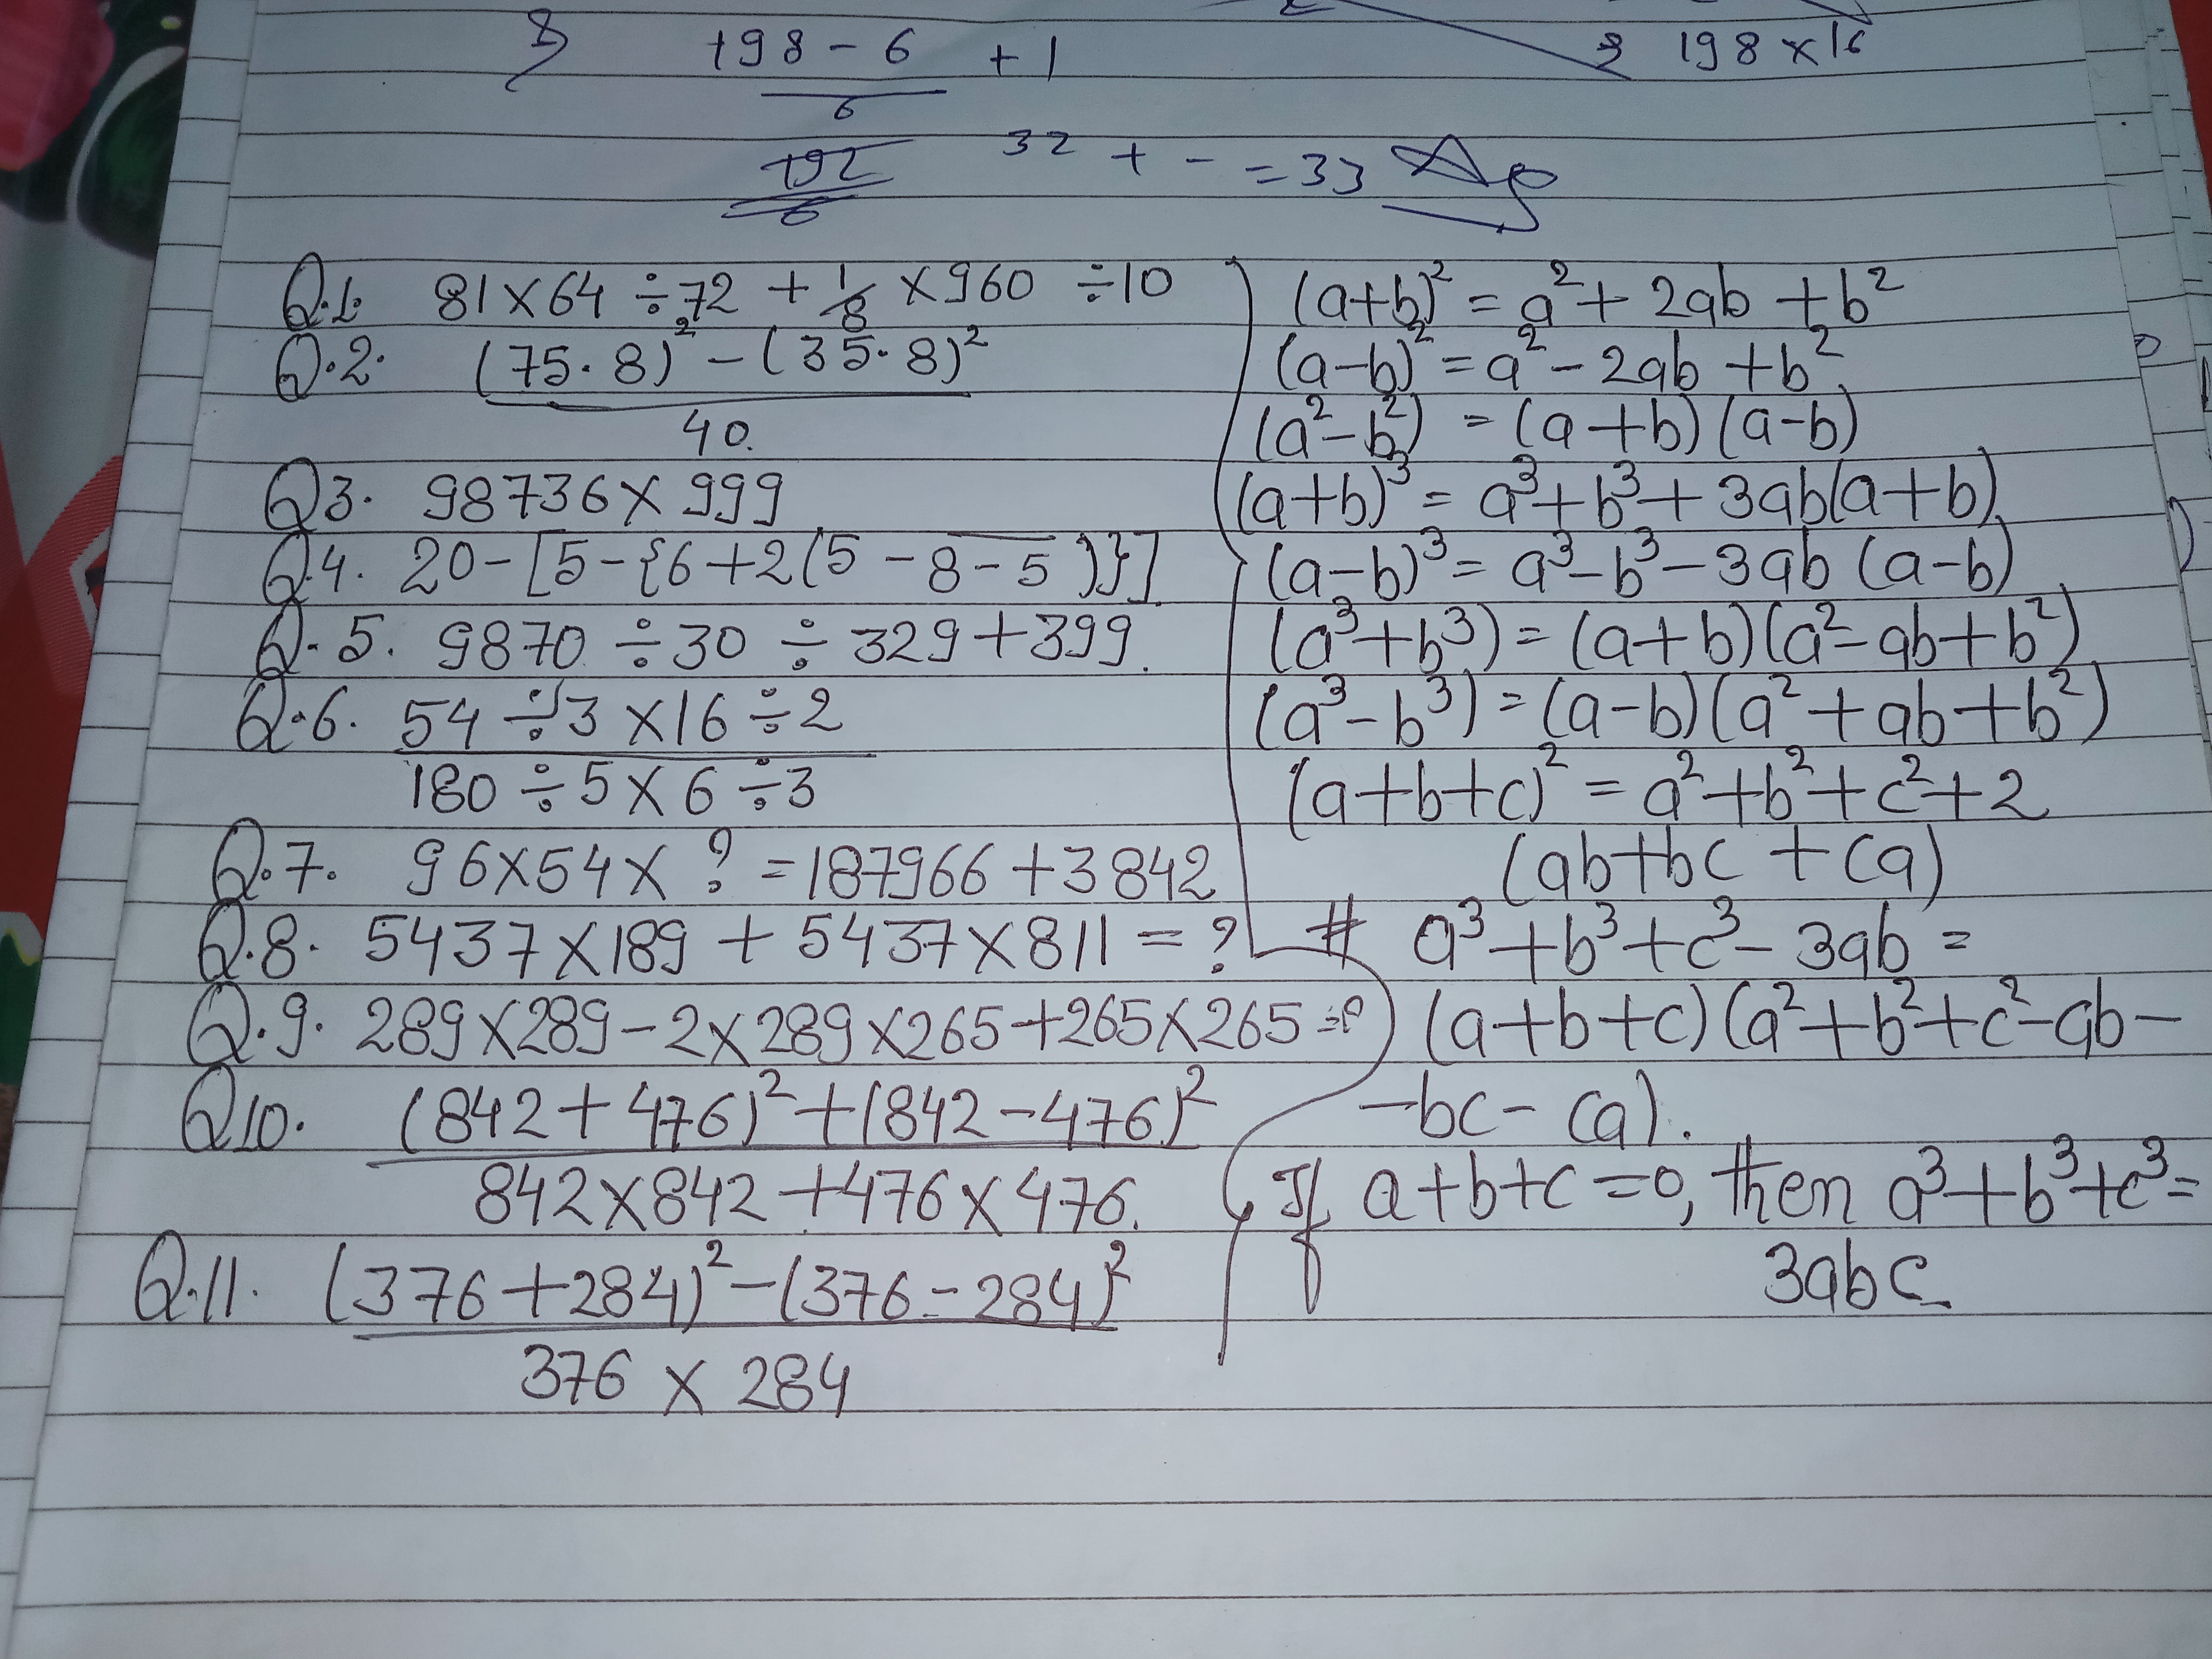 198 - 6 + 1
6
⇒ 198 × 16
192
6
32 + - = 33 Ans
Q.1. 81 × 64 ÷ 72 + 1/8 × 960 ÷ 10
Q.2. (75.8)² - (35.8)²
40.
Q3. 98736 × 999
Q.4. 20 - [5 - {6 + 2(5 - 8 - 5)}]
Q.5. 9870 ÷ 30 ÷ 329 + 399.
Q.6. 54 ÷ 3 × 16 ÷ 2
180 ÷ 5 × 6 ÷ 3
Q.7. 96 × 54 × ? = 187966 + 3842
Q.8. 5437 × 189 + 5437 × 811 = ?
Q.9. 289 × 289 - 2 × 289 × 265 + 265 × 265 = ?
Q10. (842 + 476)² + (842 - 476)²
842 × 842 + 476 × 476.
Q.11. (376 + 284)² - (376 - 284)²
376 × 284
(a+b)² = a² + 2ab + b²
(a-b)² = a² - 2ab + b²
(a² - b²) = (a+b)(a-b)
(a+b)³ = a³ + b³ + 3ab(a+b)
(a-b)³ = a³ - b³ - 3ab(a-b)
(a³ + b³) = (a+b)(a² - ab + b²)
(a³ - b³) = (a-b)(a² + ab + b²)
(a+b+c)² = a² + b² + c² + 2
(ab+bc+ca)
# a³ + b³ + c³ - 3ab =
(a+b+c)(a² + b² + c² - ab -
-bc - ca).
If a+b+c = 0, then a³ + b³ + c³ =
3abc